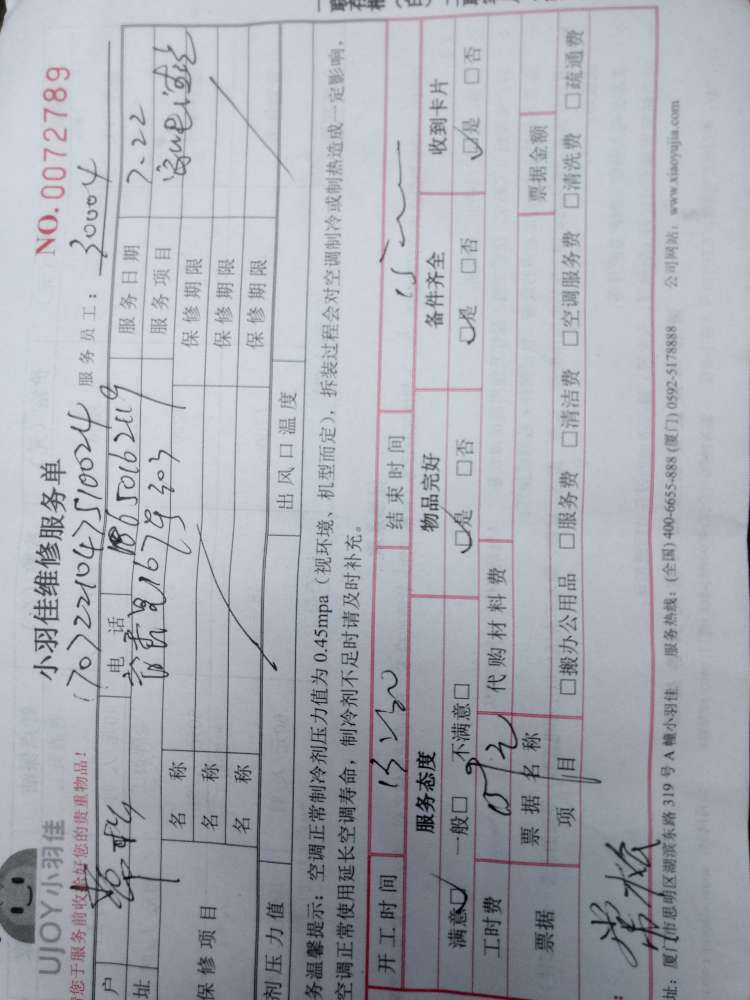 UJOY小羽佳
小羽佳维修服务单
NO.0072789
您于服务前收好您的贵重物品！
17072221047510024
服务员工：
30004
户
电 话
18650162119
服务日期
7.22
址
167号303
服务项目
保修项目
名 称
保修期限
名 称
保修期限
名 称
保修期限
剂压力值
出风口温度
务温馨提示：空调正常制冷剂压力值为0.45mpa（视环境、机型而定），拆装过程会对空调制冷或制热造成一定影响，
空调正常使用延长空调寿命，制冷剂不足时请及时补充。
开工时间
13:30
结束时间
服务态度
物品完好
备件齐全
收到卡片
满意□ 一般□ 不满意□
□是 □否
□是 □否
□是 □否
工时费
代购材料费
票据
票据名称
票据金额
项 目
□搬办公用品 □服务费 □清洁费 □空调服务费 □清洗费 □疏通费
址：厦门市思明区湖滨东路319号A幢小羽佳 服务热线：(全国) 400-6655-888 (厦门) 0592-5178888 公司网站：www.xiaoyujia.com